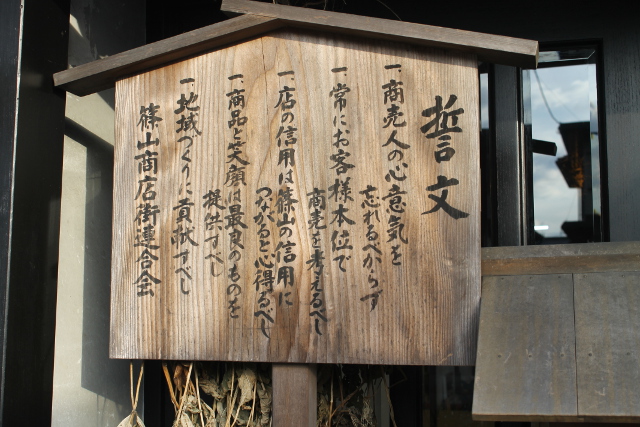 誓文
一、商売人の心意気を
忘れるべからず
一、常にお客様本位で
商売を考えるべし
一、店の信用は篠山の信用に
つながると心得るべし
一、商品と笑顔は最良のものを
提供すべし
一、地域づくりに貢献すべし
篠山商店街連合会